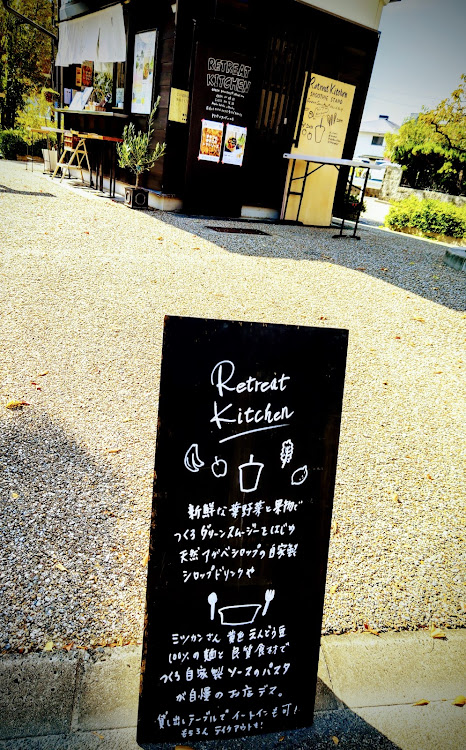 RETREAT
KITCHEN
Retreat Kitchen
Retreat
Kitchen
新鮮な葉野菜と果物で
つくるグリーンスムージーをはじめ
天然アガベシロップの自家製
シロップドリンクや
ミツカンさん 黄色えんどう豆
100%の麺と良質食材で
つくる自家製ソースのパスタ
が自慢のお店デス。
貸し出しテーブルでイートインも可!
もちろんテイクアウトも!